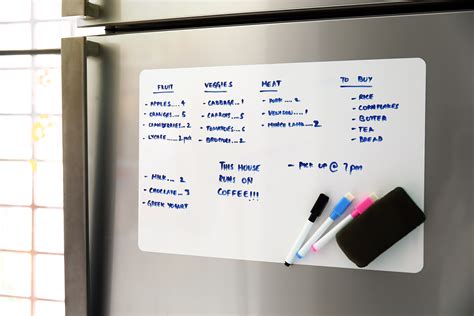 FRUIT
- APPLES.... 4
- ORANGES.... 5
- CRANBERRIES... 2
- LYCHEE.... 2 pack
VEGGIES
- CABBAGE... 1
- CARROTS... 5
- TOMATOES... 6
- BROCCOLI... 2
MEAT
- PORK .... 2
- VENISON.... 1
- MINCED LAMB.... 2
TO BUY
- RICE
- CORNFLAKES
- BUTTER
- TEA
- BREAD
- MILK.... 2
- CHOCOLATE... 3
- GREEK YOGURT
THIS HOUSE
RUNS ON
COFFEE!!!
- PICK UP @ 7 pm